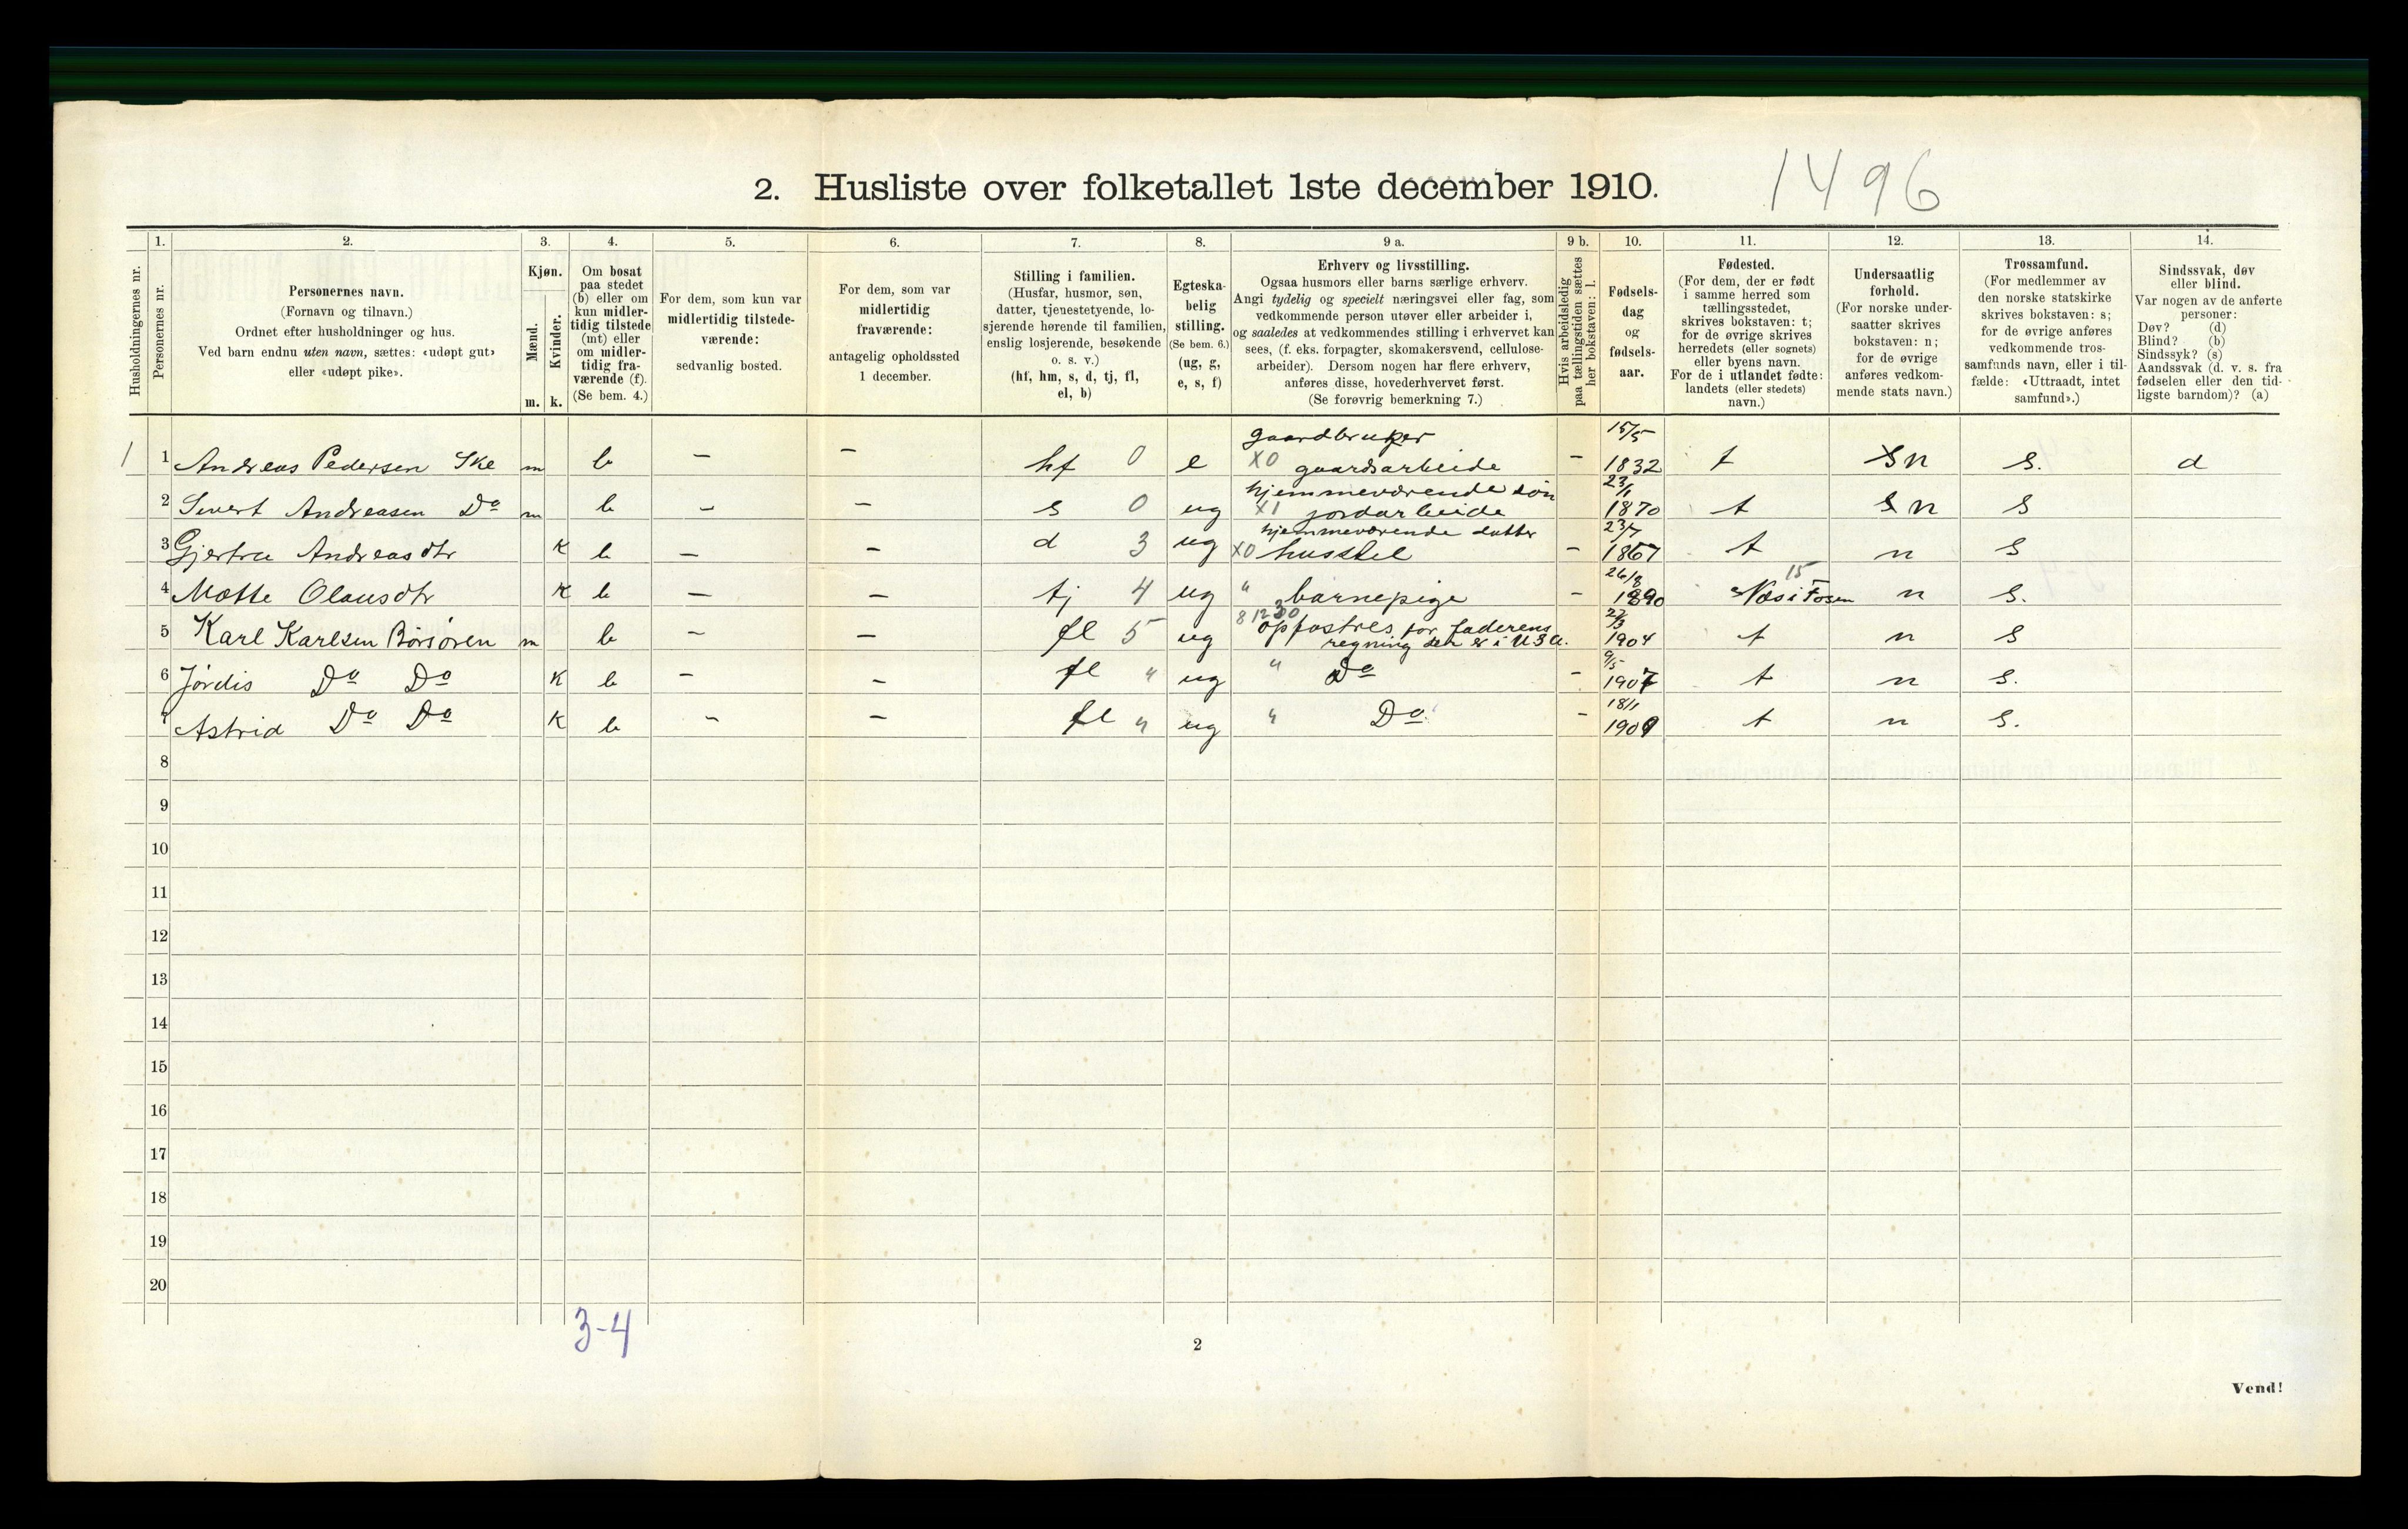 2. Husliste over folketallet 1ste december 1910.
1496
Husholdningernes nr.
1.
Personernes nr.
2.
Personernes navn.
(Fornavn og tilnavn.)
Ordnet efter husholdninger og hus.
Ved barn endnu uten navn, sættes: «udøpt gut»
eller «udøpt pike».
3.
Kjøn.
Mænd.
Kvinder.
m. k.
4.
Om bosat
paa stedet
(b) eller om
kun midler-
tidig tilstede
(mt) eller
om midler-
tidig fra-
værende (f).
(Se bem. 4.)
5.
For dem, som kun var
midlertidig tilstede-
værende:
sedvanlig bosted.
6.
For dem, som var
midlertidig
fraværende:
antagelig opholdssted
1 december.
7.
Stilling i familien.
(Husfar, husmor, søn,
datter, tjenestetyende, lo-
sjerende hørende til familien,
enslig losjerende, besøkende
o. s. v.)
(hf, hm, s, d, tj, fl,
el, b)
8.
Egteska-
belig
stilling.
(Se bem. 6.)
(ug, g,
e, s, f)
9 a.
Erhverv og livsstilling.
Ogsaa husmors eller barns særlige erhverv.
Angi tydelig og specielt næringsvei eller fag, som
vedkommende person utøver eller arbeider i,
og saaledes at vedkommendes stilling i erhvervet kan
sees, (f. eks. forpagter, skomakersvend, cellulose-
arbeider). Dersom nogen har flere erhverv,
anføres disse, hovederhvervet først.
(Se forøvrig bemerkning 7.)
9 b.
Hvis arbeidsledig
paa tællingstiden sættes
her bokstaven: l.
10.
Fødsels-
dag
og
fødsels-
aar.
11.
Fødested.
(For dem, der er født
i samme herred som
tællingsstedet,
skrives bokstaven: t;
for de øvrige skrives
herredets (eller sognets)
eller byens navn.
For de i utlandet fødte:
landets (eller stedets)
navn.)
12.
Undersaatlig
forhold.
(For norske under-
saatter skrives
bokstaven: n;
for de øvrige
anføres vedkom-
mende stats navn.)
13.
Trossamfund.
(For medlemmer av
den norske statskirke
skrives bokstaven: s;
for de øvrige anføres
vedkommende tros-
samfunds navn, eller i til-
fælde: «Uttraadt, intet
samfund».)
14.
Sindssvak, døv
eller blind.
Var nogen av de anførte
personer:
Døv? (d)
Blind? (b)
Sindssyk? (s)
Aandssvak (d. v. s. fra
fødselen eller den tid-
ligste barndom)? (a)
gaardbruker 15/5
1 1 Andreas Pedersen Ske m b – – hf 0 e X0 gaardsarbeide – 1832 t n s. d
hjemmeværende søn 23/1
2 Sivert Andreasen Do m b – – s 0 ug X1 jordarbeide 1870 t n s
hjemmeværende datter 23/7
3 Gjertru Andreasdtr k b – – d 3 ug X0 husstel – 1867 t n s
26/8 15
4 Mette Olausdtr k b – – tj 4 ug " barnepige – 1890 Næs i Fosen n s.
opfostres for faderens 22/3
5 Karl Karlsen Børsøren m b – – fl 5 ug regning den er i U S a. 1904 t n s
9/5
6 Jørdis Do Do k b – – fl " ug " Do – 1907 t n s.
18/1
7 Astrid Do Do k b – – fl " ug " Do – 1909 t n s.
8
9
10
11
12
13
14
15
16
17
18
19
20
3-4
2
Vend!